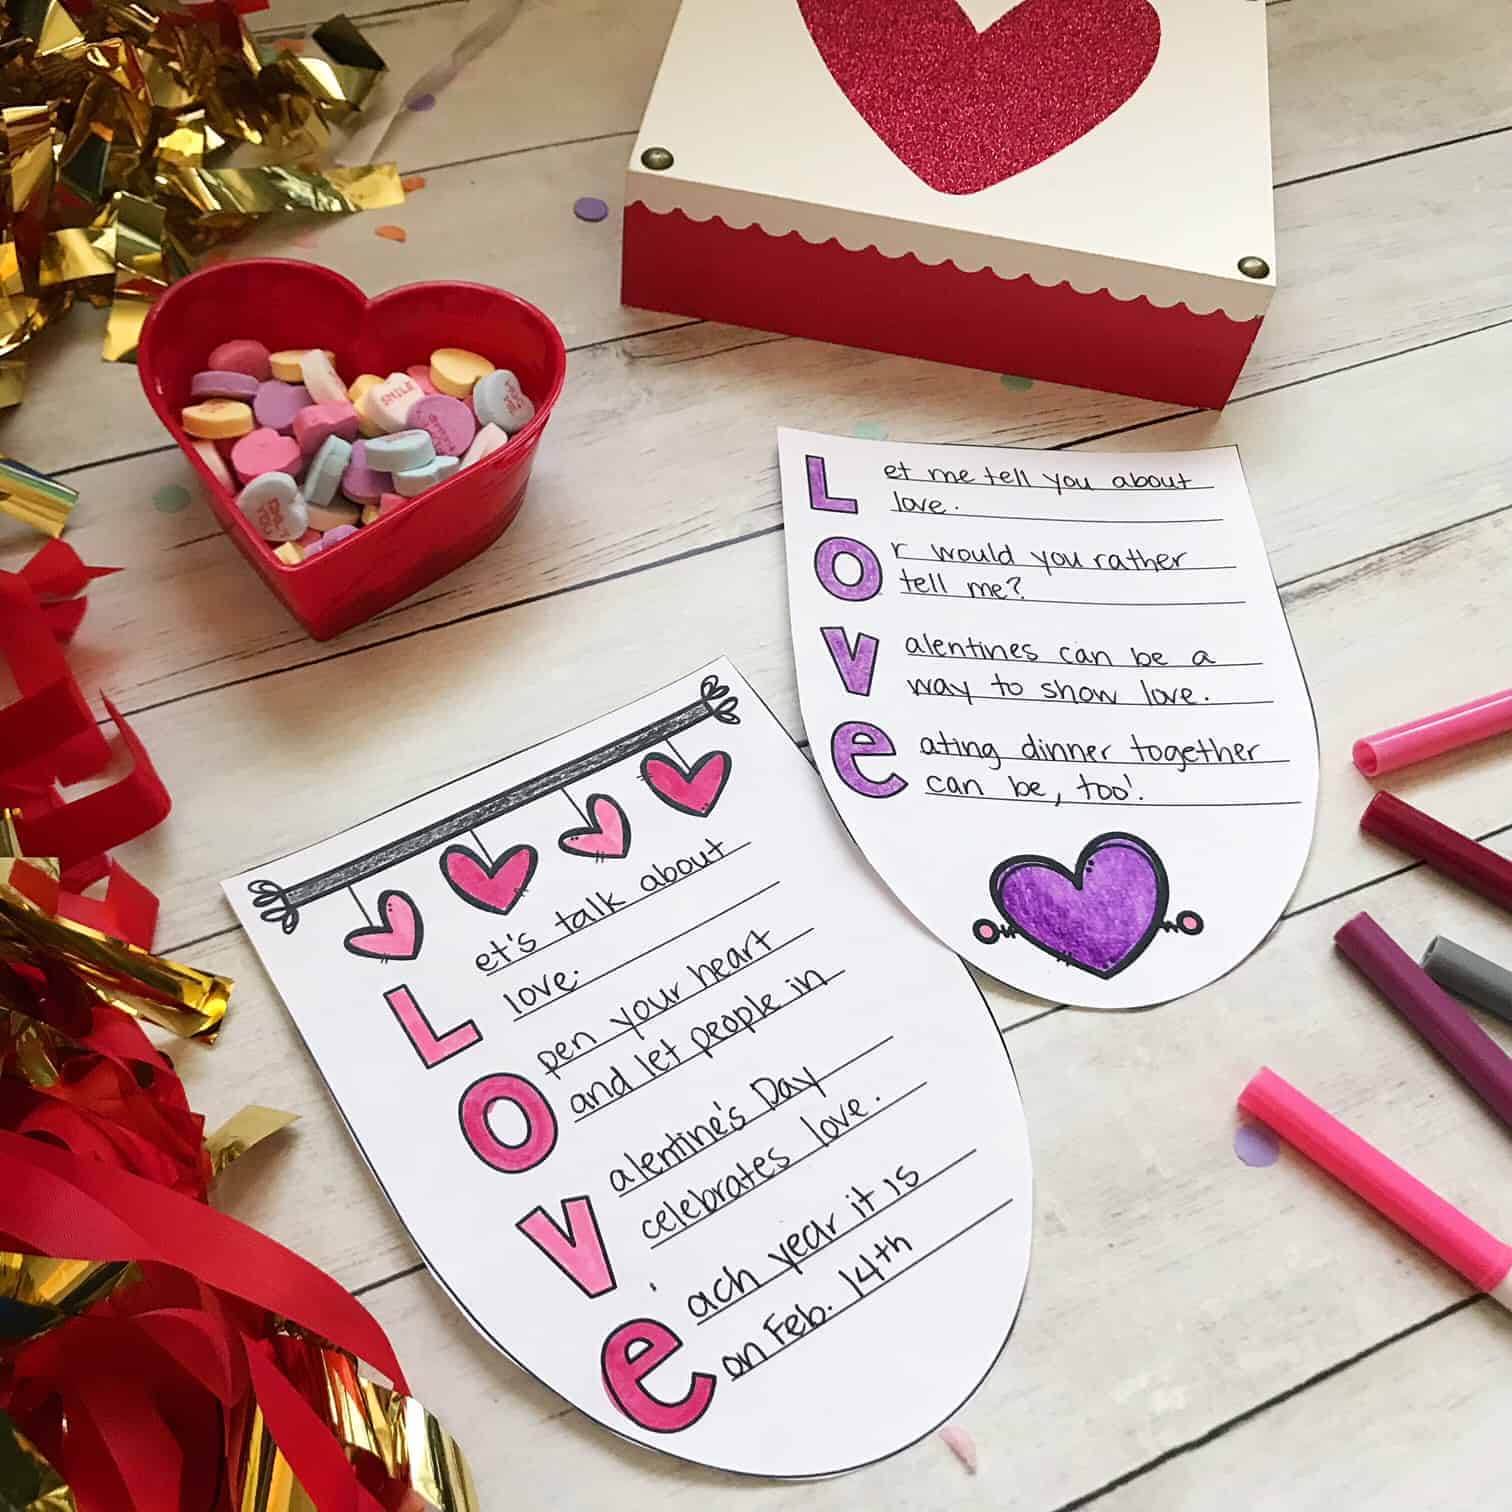 Let me tell you about
love.
Or would you rather
tell me?
Valentines can be a
way to show love.
eating dinner together
can be, too!
Let's talk about
love.
Open your heart
and let people in
Valentine's Day
celebrates love.
each year it is
on Feb. 14th
SMILE